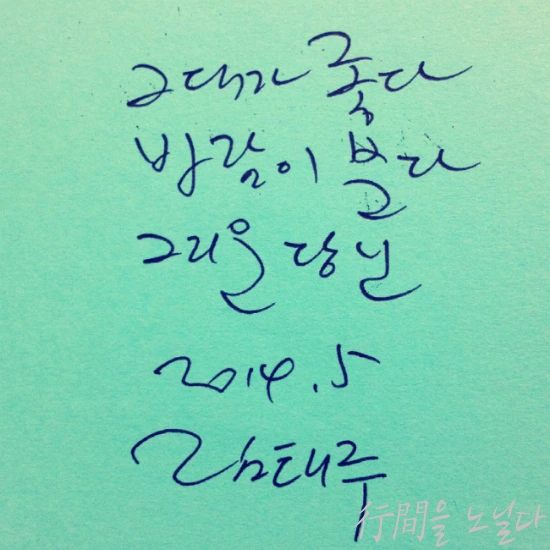 그대가 좋다
바람이 분다
그리운 당신
2014.5
김태주
行間을 노닐다